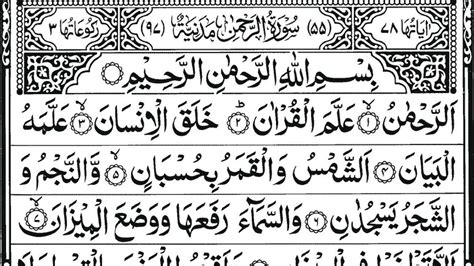 اٰیَاتُهَا ٧٨ (٥٥) سُوْرَةُ الرَّحْمٰنِ مَدَنِیَّةٌ (٩٧) رُكُوْعَاتُهَا ٣
بِسْمِ اللّٰهِ الرَّحْمٰنِ الرَّحِیْمِ
اَلرَّحْمٰنُ ١ عَلَّمَ الْقُرْاٰنَ ٢ خَلَقَ الْاِنْسَانَ ٣ عَلَّمَهُ
الْبَیَانَ ٤ اَلشَّمْسُ وَالْقَمَرُ بِحُسْبَانٍ ٥ وَّالنَّجْمُ وَ
الشَّجَرُ یَسْجُدٰنِ ٦ وَالسَّمَآءَ رَفَعَهَا وَوَضَعَ الْمِیْزَانَ ٧